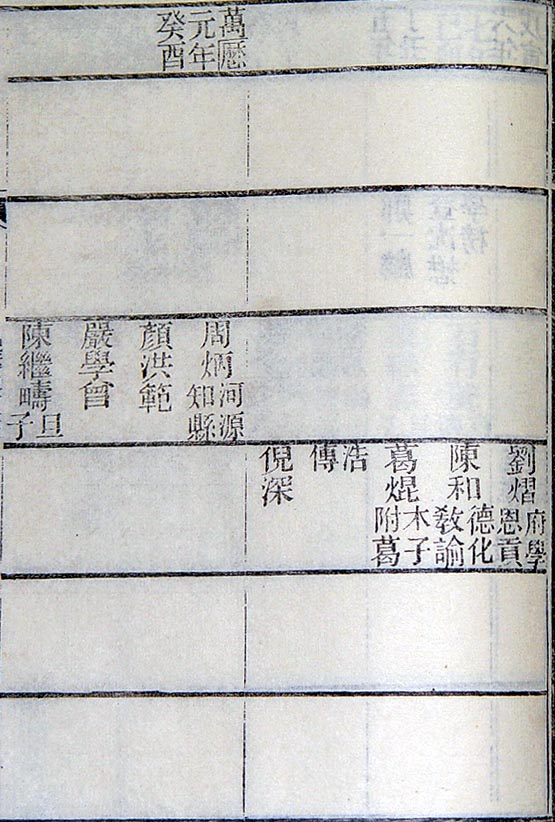 劉熠府學恩貢
陳和德化敎諭
葛焜木子附葛
浩傳
倪深
萬曆
元年
癸酉
周炳河源知縣
顏洪範
嚴學曾
陳繼疇旦子